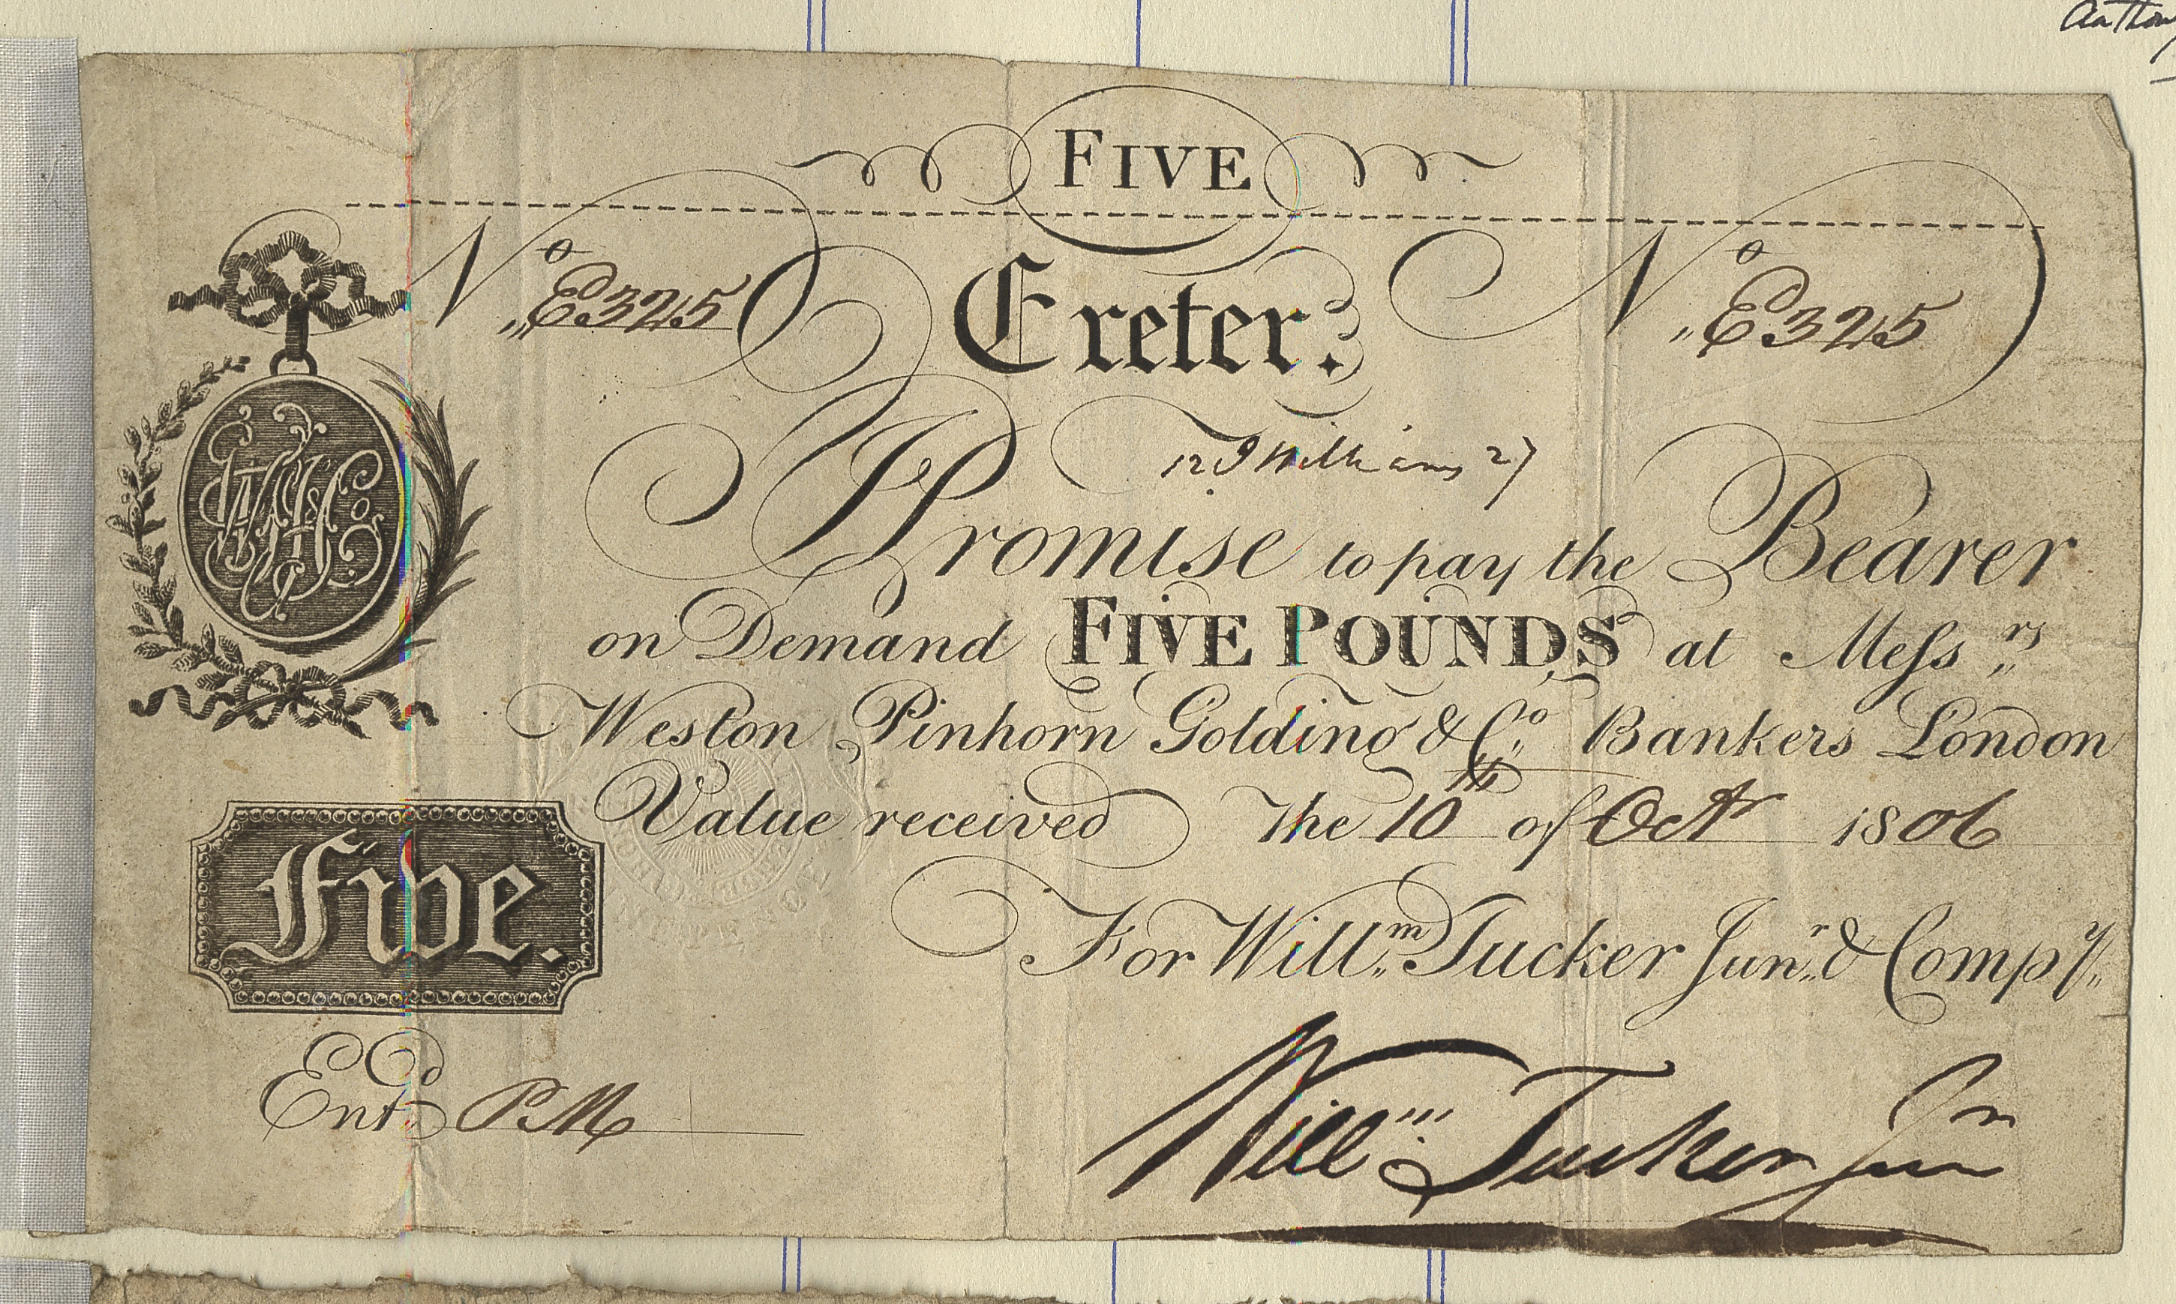 FIVE
Nº E325 Nº E325
Exeter.
12 J Williams 27
I Promise to pay the Bearer
on Demand FIVE POUNDS at Meſsrs
Weston Pinhorn Golding & Cº. Bankers London
Value received The 10th of Octr 1806
Five.
For Willm. Tucker Junr. & Compy.
Entd. PM
Willm Tucker Junr